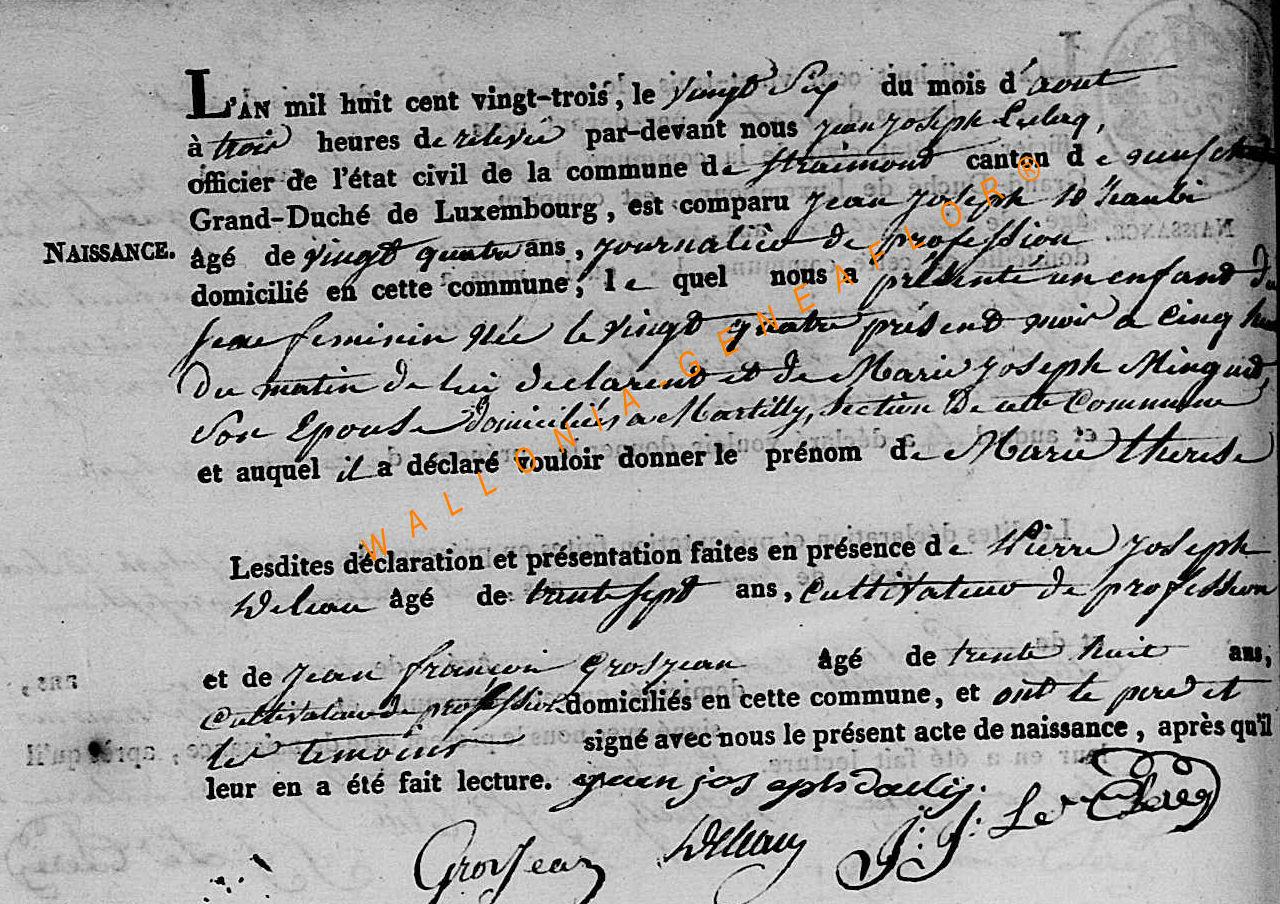 L'AN mil huit cent vingt-trois, le vingt Six du mois d'aout
à trois heures de relevée par-devant nous jean joseph Leclerq,
officier de l'état civil de la commune de Straimont canton de
Grand-Duché de Luxembourg, est comparu jean joseph
NAISSANCE. âgé de vingt quatre ans, journalièr de profession
domicilié en cette commune, le quel nous a présenté un enfant du
sexe feminin née le vingt quatre présent mois a cinq
du matin de lui declarent et de Marie joseph
son Epouse domiciliés a Martilly, section De cette Commune
et auquel il a déclaré vouloir donner le prénom de Marie therese
WALLONIA.GENEAFLOR®
Lesdites déclaration et présentation faites en présence de Pierre joseph
âgé de trente sept ans, cultivateur de profession
et de jean françois Grosjean âgé de trente huit ans,
cultivateur de profession domiciliés en cette commune, et ont le pere et
les temoins signé avec nous le présent acte de naissance, après qu'il
leur en a été fait lecture. jean joseph
Grosjean J: J: Le Clerq